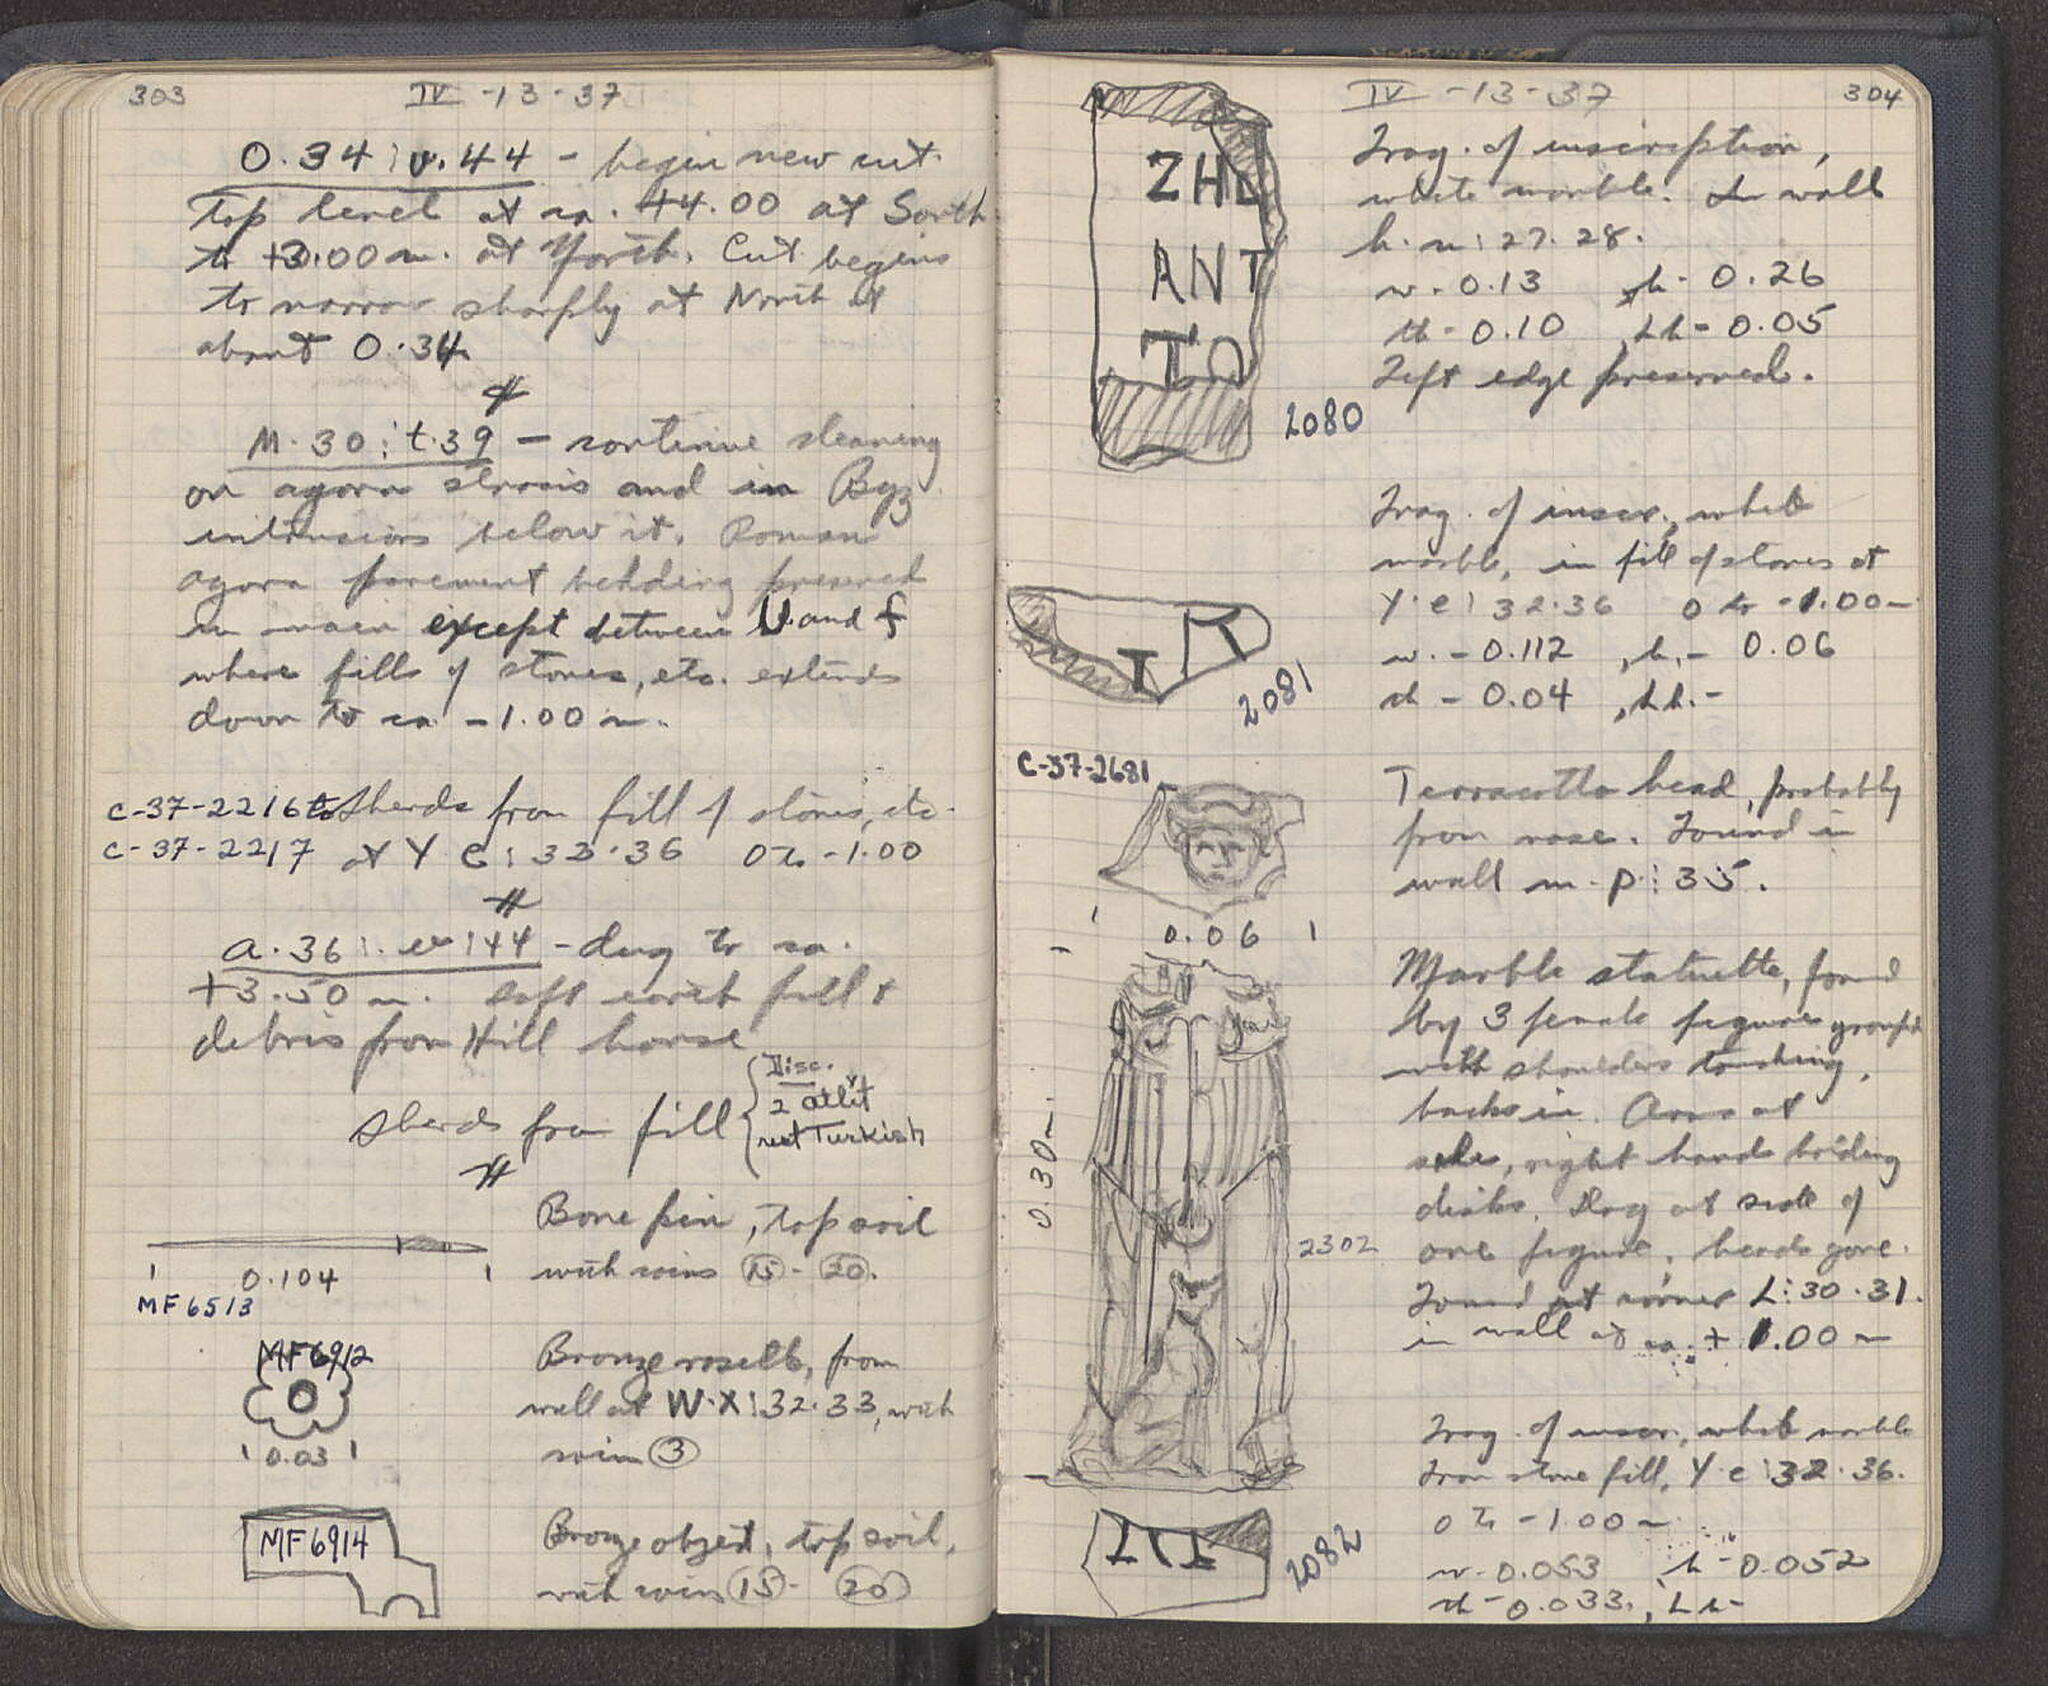 303
IV -13-37
O.34 : v.44 - begin new cut.
Top level at ca. +4.00 at South
to +3.00 m. at North. Cut begins
to narrow sharply at North at
about O.34.
M.30 : t.39 - continue cleaning
on agora stosis and in Byz
intrusions below it. Roman
agora pavement bedding preserved
in main except between U and f
where fills of stones, etc. extends
down to ca -1.00 m.
C-37-2216 to Sherds from fill of stones, etc.
C-37-2217 at Y e : 32.36 0 to -1.00
a.36 : 44 - dug to ca.
+3.50 m. soft earth fill &
debris from Hill house
Sherds from fill { Disc.
2 atlit
rest Turkish
Bone pin, top soil
with coins 15 - 20.
0.104
MF 6513
MF 6912
Bronze rosette, from
well at W.X : 32.33, with
coin 3
0.03
MF 6914
Bronze object, top soil,
with coins 15 - 20
IV -13-37
304
ZH
ANT
TO
2080
Frag. of inscription,
white marble. In wall
h.n : 27.28.
w - 0.13 h - 0.26
th - 0.10, Lh - 0.05
Left edge preserved.
Frag. of inscr., white
marble, in fill of stones at
Y.e : 32.36 0 to -1.00 m
w. - 0.112, h. - 0.06
th - 0.04, Lh. -
2081
C-37-2681
0.06
Terracotta head, probably
from vase. Found in
wall m-p : 35.
Marble statuette, formed
by 3 female figures grouped
with shoulders touching,
backs in. Arms at
sides, right hands holding
disks. Dog at side of
one figure, heads gone.
Found at corner L : 30.31.
in wall at ca. + 1.00 m
0.30 m.
2302
Frag. of inscr., white marble
from stone fill, Y.e : 32.36.
0 to -1.00 m
w - 0.053 h - 0.052
th - 0.033, Lh -
2082